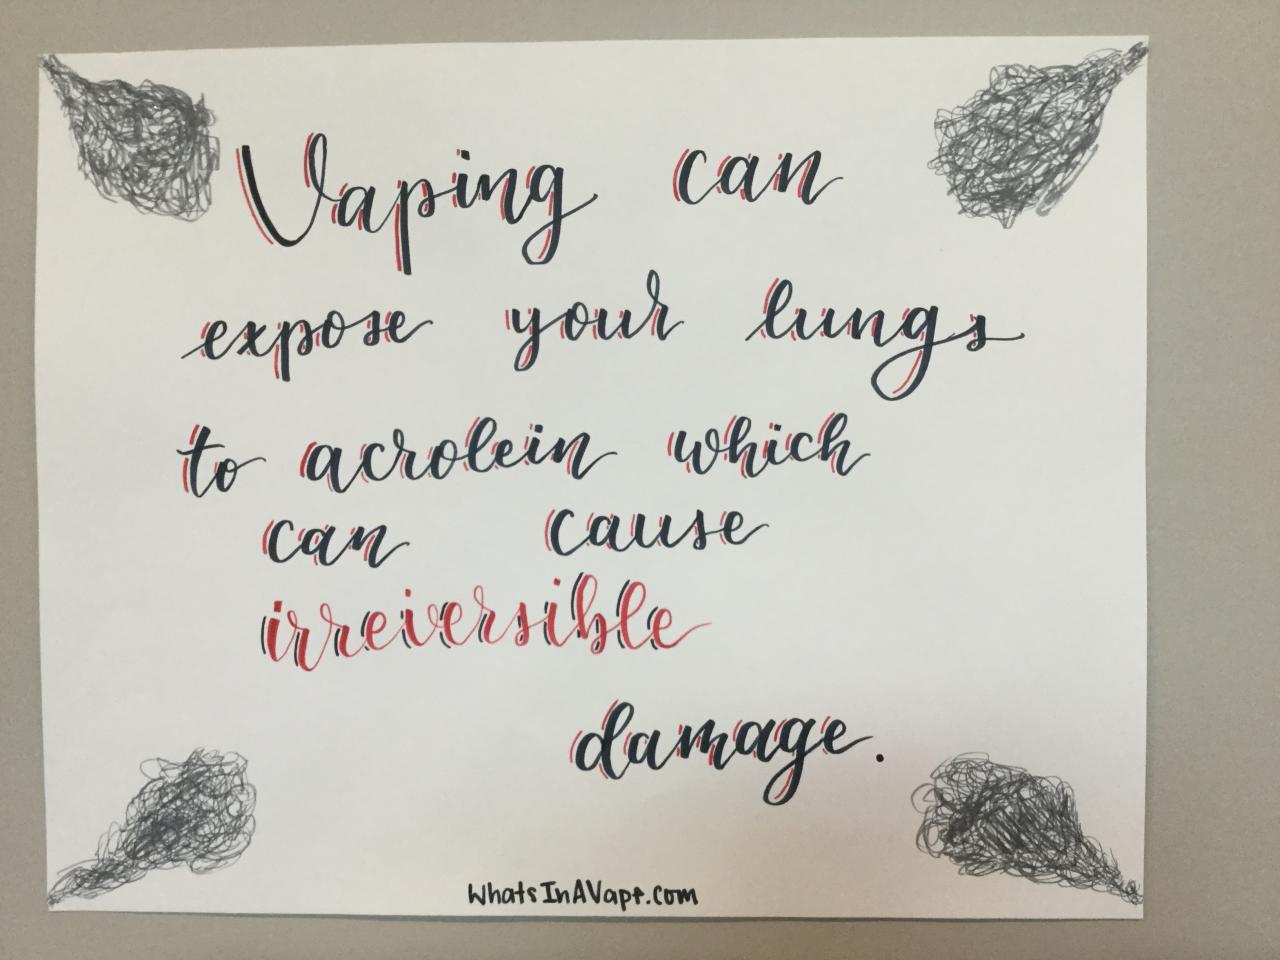 Vaping can
expose your lungs
to acrolein which
can cause
irreversible
damage.
WhatsInAVape.com